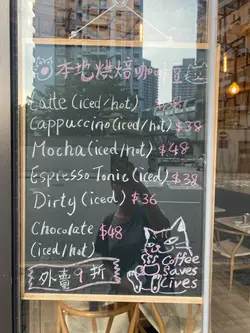 本地烘焙咖啡
Latte (iced/hot)
Cappuccino (iced/hot) $38
Mocha (iced/hot) $48
Espresso Tonic (iced) $38
Dirty (iced) $36
Chocolate $48
(iced/hot)
外賣9折
Coffee
Saves
Lives